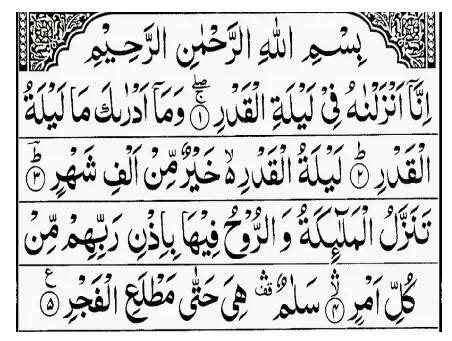 بِسْمِ اللهِ الرَّحْمٰنِ الرَّحِيْمِ
اِنَّاۤ اَنْزَلْنٰهُ فِيْ لَيْلَةِ الْقَدْرِ ۚۖ ﴿۱﴾ وَمَاۤ اَدْرٰىكَ مَا لَيْلَةُ
الْقَدْرِ ؕ ﴿۲﴾ لَيْلَةُ الْقَدْرِ ۙ۬ خَيْرٌ مِّنْ اَلْفِ شَهْرٍ ؕؔ ﴿۳﴾
تَنَزَّلُ الْمَلٰٓئِكَةُ وَ الرُّوْحُ فِيْهَا بِاِذْنِ رَبِّهِمْ مِّنْ
كُلِّ اَمْرٍ ۙۛ ﴿۴﴾ سَلٰمٌ ۛ قف هِيَ حَتّٰى مَطْلَعِ الْفَجْرِ ﴿۵﴾ ع